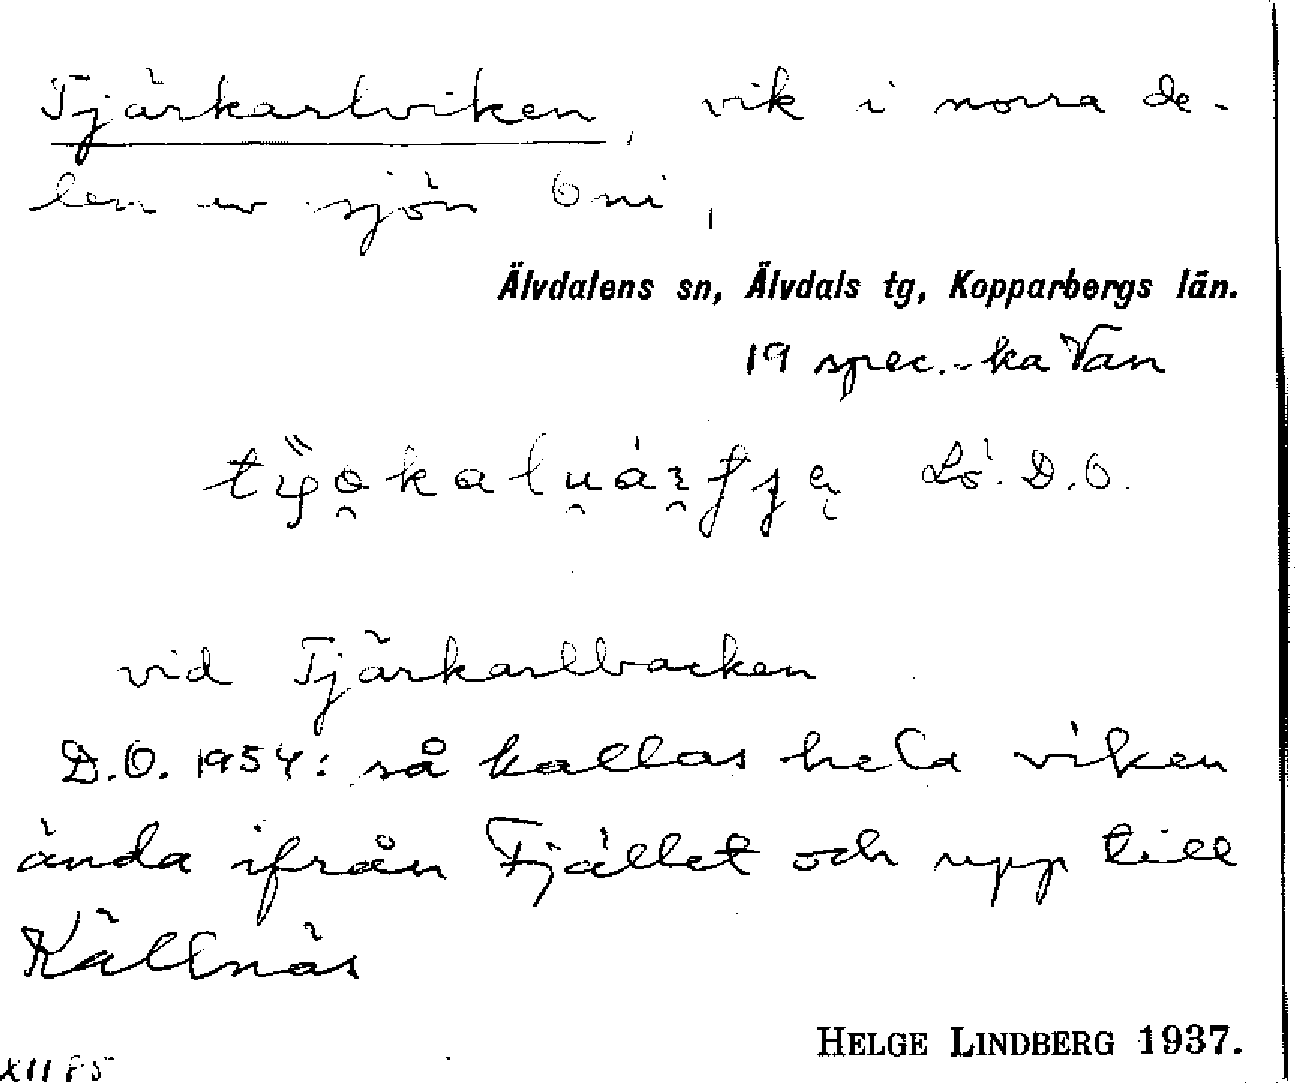 Tjärkarlviken, vik i norra de-
len av sjön Oni,
Älvdalens sn, Älvdals tg, Kopparbergs län.
19 spec.-ka Van
Lö. D.O.
vid Tjärkarlbacken
D.O. 1954: så kallas hela viken
ända ifrån Fjället och upp till
Källnäs
HELGE LINDBERG 1937.
XII 85